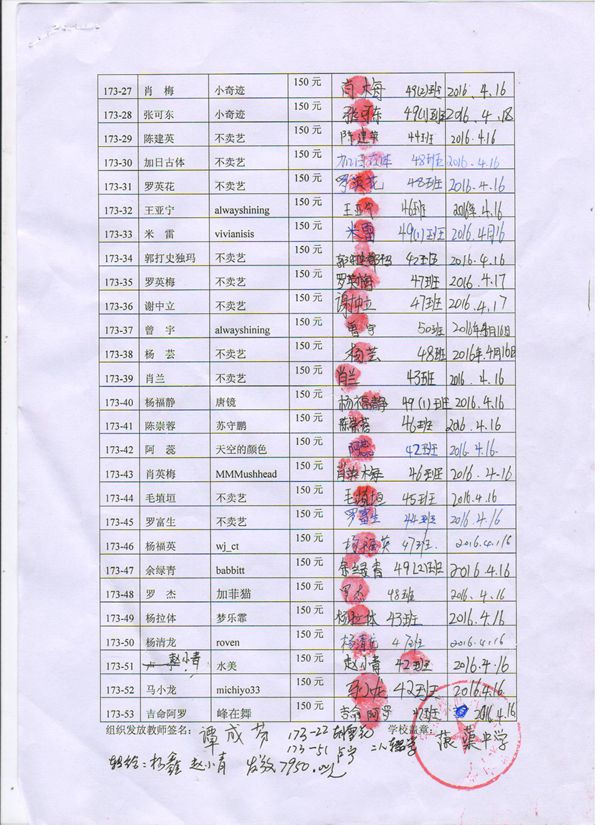 173-27 肖 梅 小奇迹 150 元 肖梅 49(2)班 2016.4.16
173-28 张可东 小奇迹 150 元 张可东 49(1)班 2016.4.18
173-29 陈建英 不卖艺 150 元 陈建英 44班 2016.4.16
173-30 加日古体 不卖艺 150 元 加日古体 48班 2016.4.16
173-31 罗英花 不卖艺 150 元 罗英花 48班 2016.4.16
173-32 王亚宁 alwayshining 150 元 王亚宁 46班 2016年4.16
173-33 米 雷 vivianisis 150 元 米雷 49(1)班 2016.4月16
173-34 郭打史独玛 不卖艺 150 元 42班 2016.4.16
173-35 罗英梅 不卖艺 150 元 罗英梅 47班 2016.4.17
173-36 谢中立 不卖艺 150 元 谢中立 47班 2016.4.17
173-37 曾 宇 alwayshining 150 元 曾宇 50班 2016年4月16日
173-38 杨 芸 不卖艺 150 元 杨芸 48班 2016年4月16日
173-39 肖兰 不卖艺 150 元 肖兰 43班 2016.4.16
173-40 杨福静 唐镜 150 元 杨福静 49(1)班 2016.4.16
173-41 陈崇蓉 苏守鹏 150 元 陈崇蓉 46班 2016.4.16
173-42 阿 蕊 天空的颜色 150 元 阿蕊 42班 2016.4.16
173-43 肖英梅 MMMushhead 150 元 肖英梅 46班 2016.4.16
173-44 毛埴垣 不卖艺 150 元 毛埴垣 45班 2016.4.16
173-45 罗富生 不卖艺 150 元 罗富生 44班 2016.4.16
173-46 杨福英 wj_ct 150 元 杨福英 47班 2016.4.16
173-47 余绿青 babbitt 150 元 余绿青 49(2)班 2016.4.16
173-48 罗 杰 加菲猫 150 元 罗杰 48班 2016.4.16
173-49 杨拉体 梦乐霏 150 元 杨拉体 43班 2016.4.16
173-50 杨清龙 roven 150 元 杨清龙 47班 2016.4.16
173-51 赵小青 水美 150 元 赵小青 42班 2016.4.16
173-52 马小龙 michiyo33 150 元 马小龙 42班 2016.4.16
173-53 吉命阿罗 峰在舞 150 元 吉命阿罗 47班 2016.4.16
组织发放教师签名: 谭成芬 173-22 学校盖章: 中学
173-51
转给:杨鑫 赵小青 发放7950.